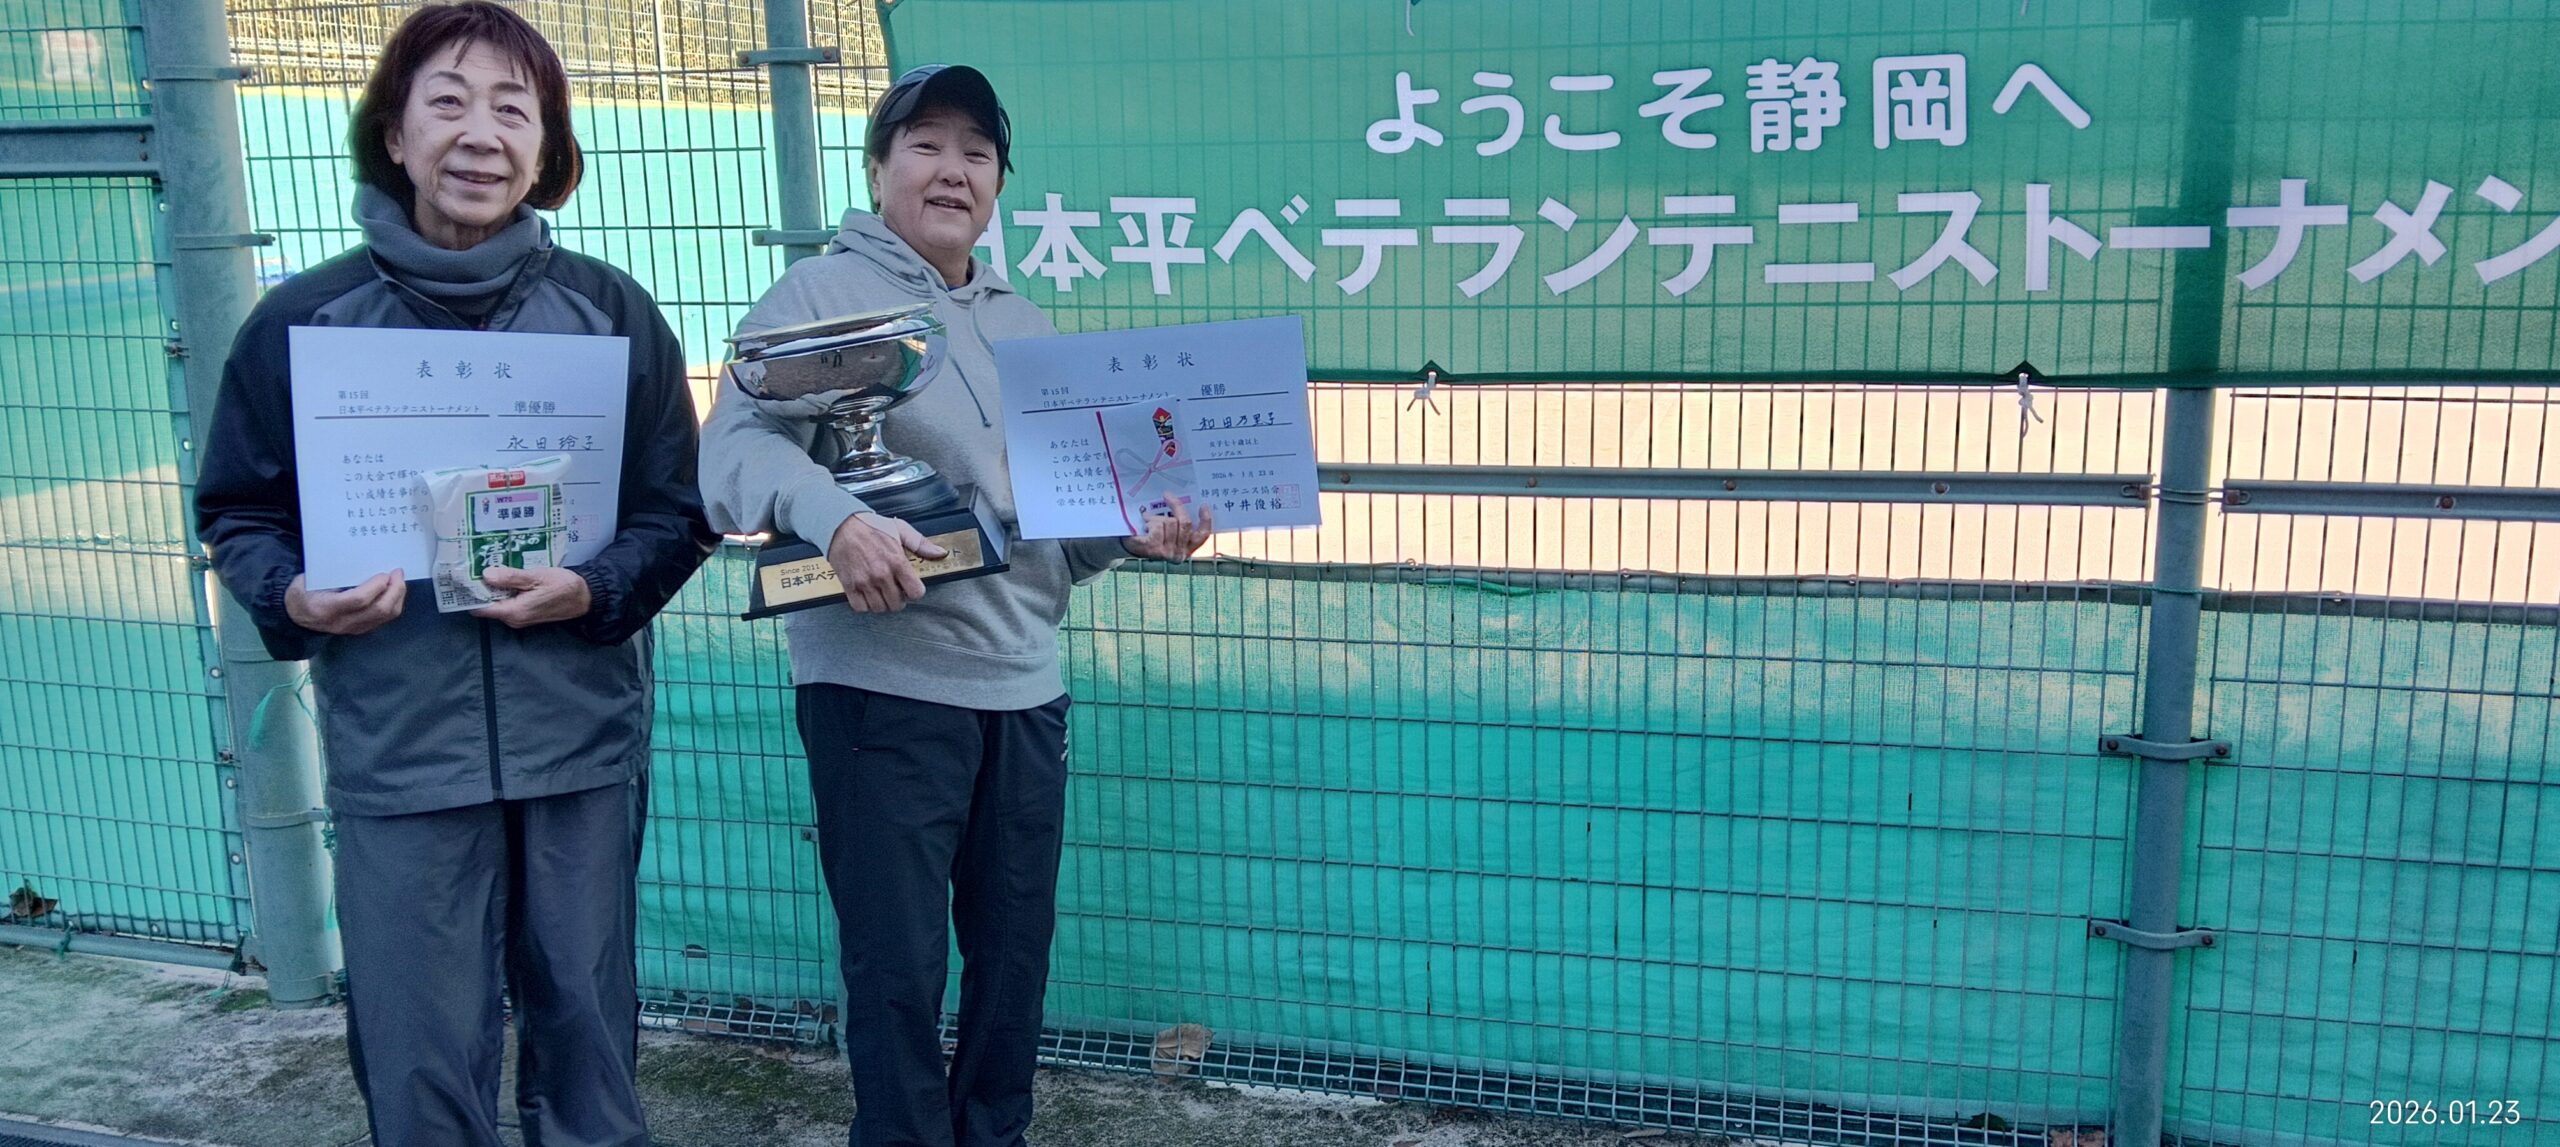 ようこそ静岡へ
日本平ベテランテニストーナメン
表彰状
第15回
日本平ベテランテニストーナメント
準優勝
永田玲子
あなたは
この大会で輝や
しい成績を挙げら
れましたのでその
栄誉を称えます。
W70
準優勝
表彰状
第15回
日本平ベテランテニストーナメント
優勝
和田乃里子
女子七十歳以上
シングルス
あなたは
この大会で
しい成績を挙
れましたので
栄誉を称えま
2026年 1月 23日
静岡市テニス協会
中井俊裕
W70
Since 2011
日本平ベテ
2026.01.23